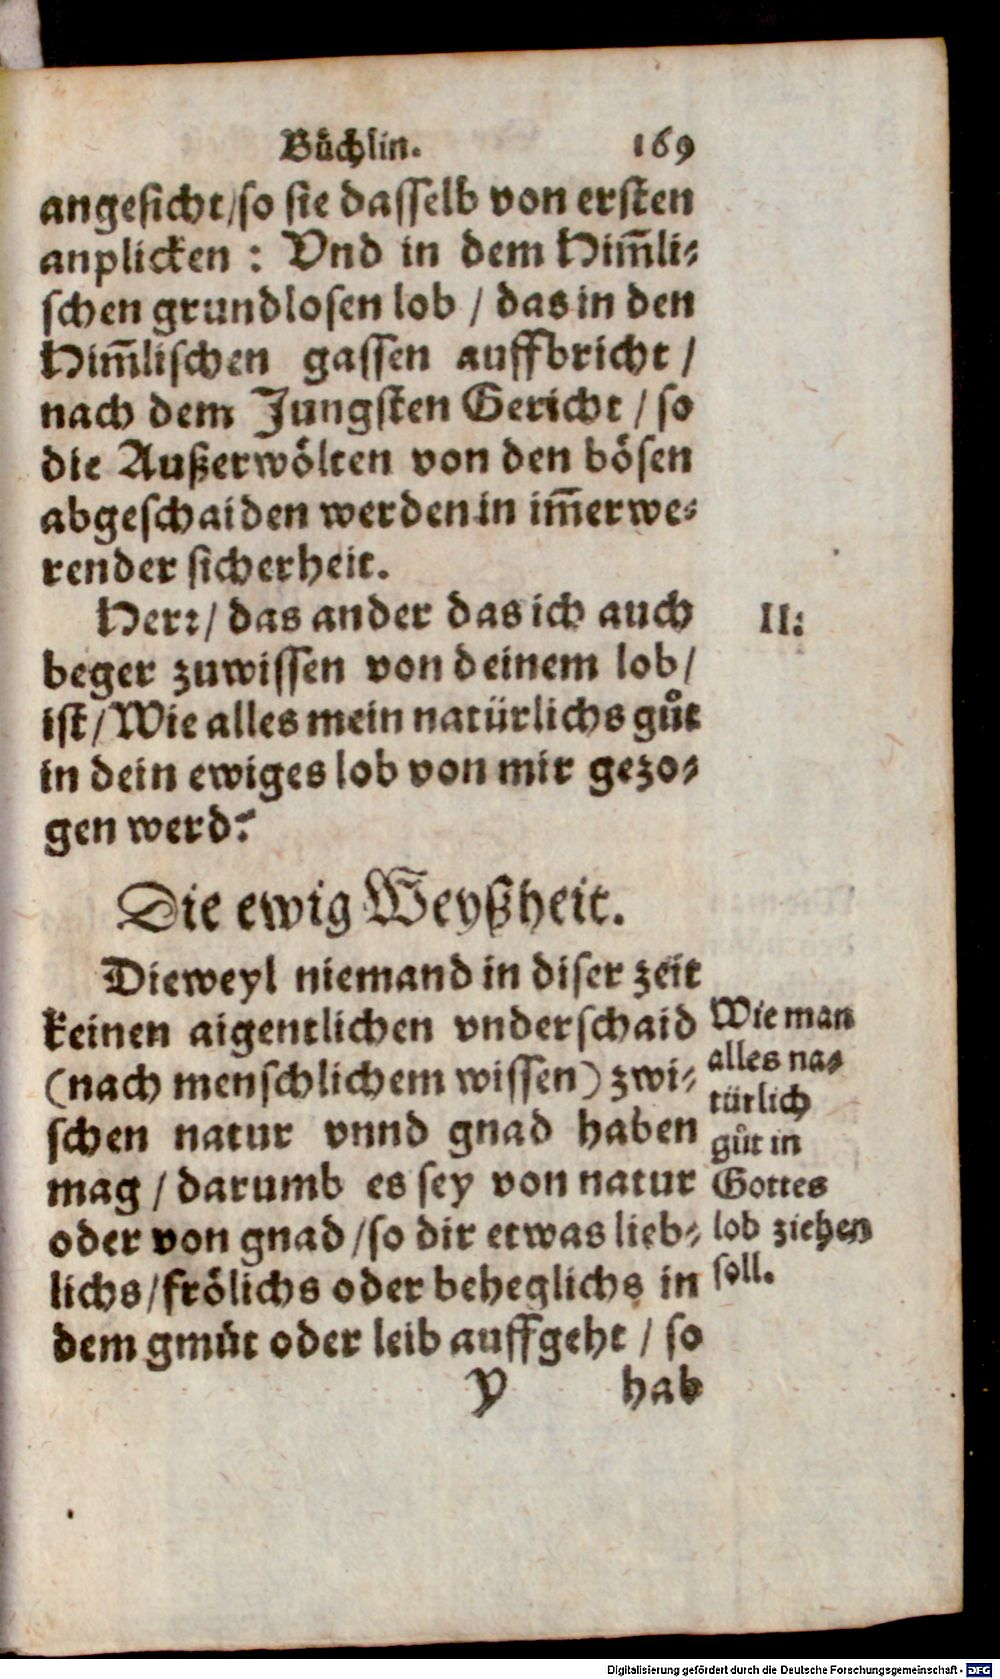 Bůchlin. 169
angesicht/so sie dasselb von ersten
anplicken : Vnd in dem Him̄li⸗
schen grundlosen lob / das in den
Him̄lischen gassen auffbricht /
nach dem Jungsten Gericht / so
die Außerwölten von den bösen
abgeschaiden werden in im̄erwe⸗
render sicherheit.
Herꝛ/ das ander das ich auch
II:
beger zuwissen von deinem lob/
ist/Wie alles mein natürlichs gůt
in dein ewiges lob von mir gezo⸗
gen werd?
Die ewig Weyßheit.
Dieweyl niemand in diser zeit
keinen aigentlichen vnderschaid
(nach menschlichem wissen) zwi⸗
schen natur vnnd gnad haben
mag / darumb es sey von natur
oder von gnad /so dir etwas lieb⸗
lichs/frölichs oder beheglichs in
dem gmůt oder leib auffgeht / so
Wie man
alles na⸗
türlich
gůt in
Gottes
lob ziehen
soll.
Y hab
Digitalisierung gefördert durch die Deutsche Forschungsgemeinschaft - DFG